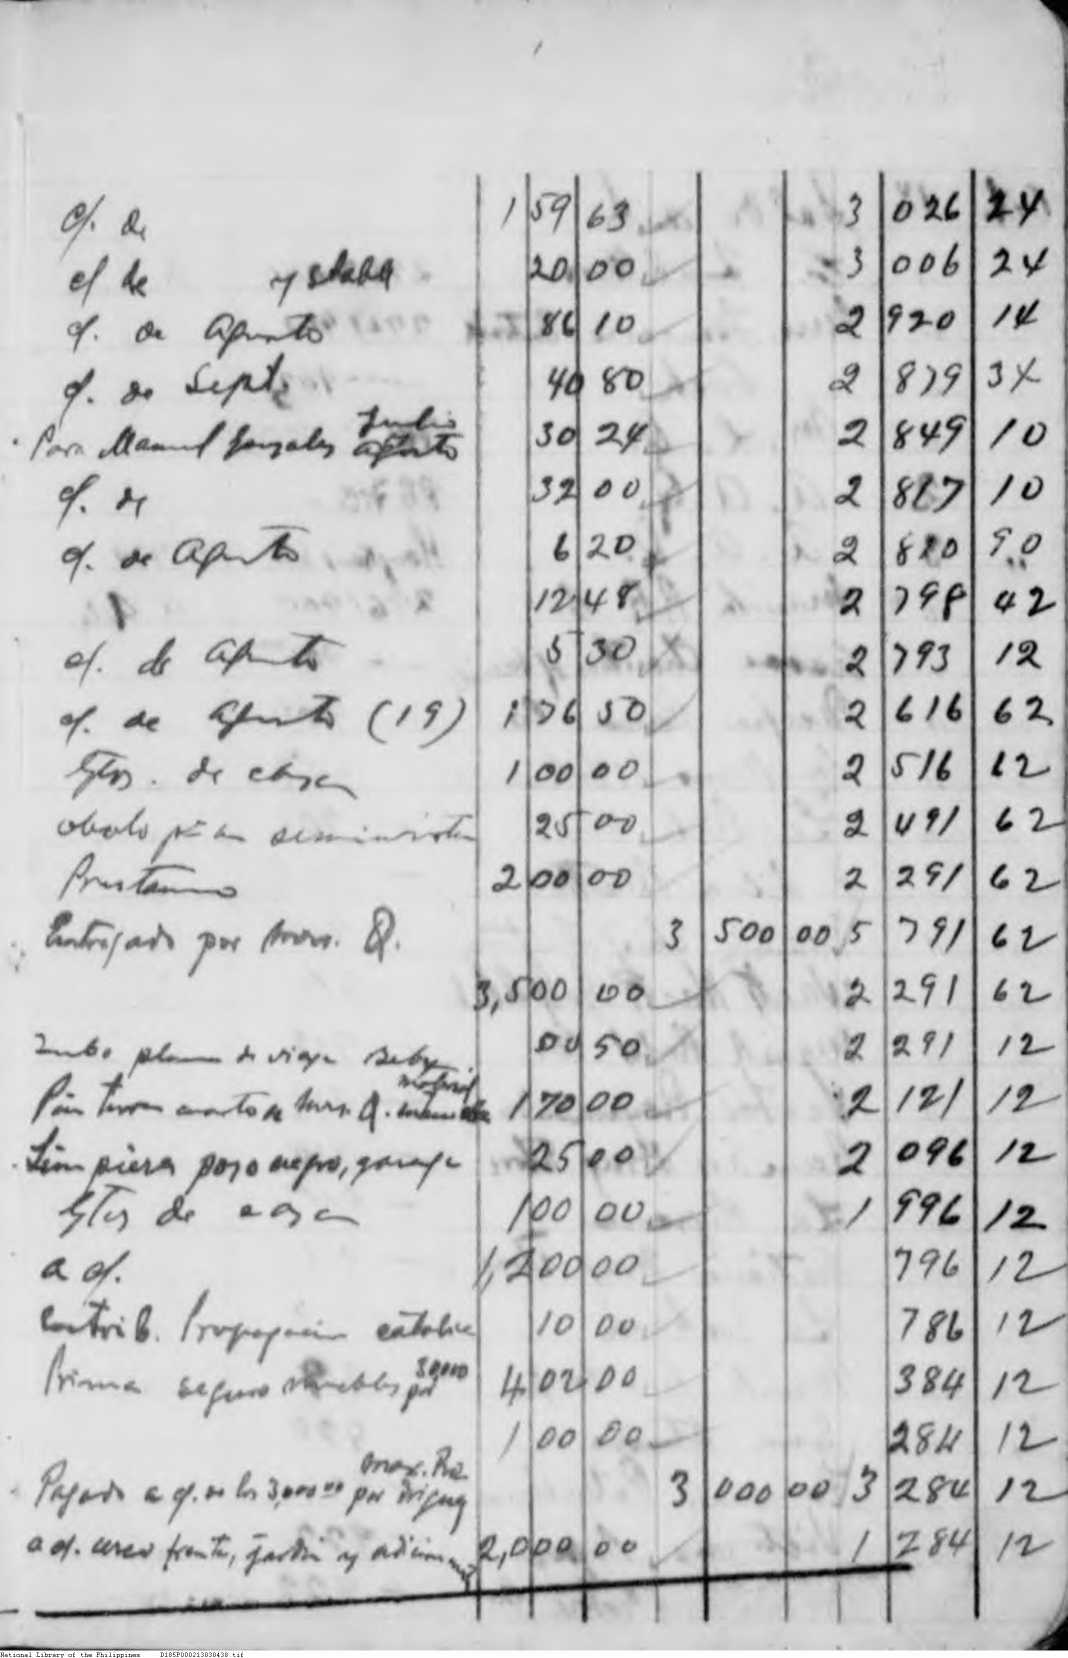 cf. de 1 59 63 3 026 24
cf. de y stada 20 00 3 006 24
cf. de Agosto 86 10 2 920 14
cf. de Sept. 40 80 2 879 34
Julio
Para Manuel Gonzales Agosto 30 24 2 849 10
cf. de 32 00 2 817 10
cf. de Agosto 6 20 2 810 90
12 48 2 798 42
cf. de Agosto 5 30 2 793 12
cf. de Agosto (19) 1 76 50 2 616 62
Gtos. de casa 1 00 00 2 516 62
obolo 25 00 2 491 62
Prestamo 2 00 00 2 291 62
Entregado por Mons. Q. 3 500 00 5 791 62
3,500 00 2 291 62
de viaje 00 50 2 291 12
cuarto de Mons. Q. 1 70 00 2 121 12
Limpieza pozo negro, garage 25 00 2 096 12
Gtos de casa 100 00 1 996 12
a cf. 1,200 00 796 12
Contrib. Propagacion catolica 10 00 786 12
30,000
Prima seguro muebles por 4 02 00 384 12
1 00 00 284 12
Pagado a cf. de los 3,000.00 por 3 000 00 3 284 12
a cf. cerco frente, jardin y 2,000 00 1 284 12
National Library of the Philippines D185P000213838438.tif